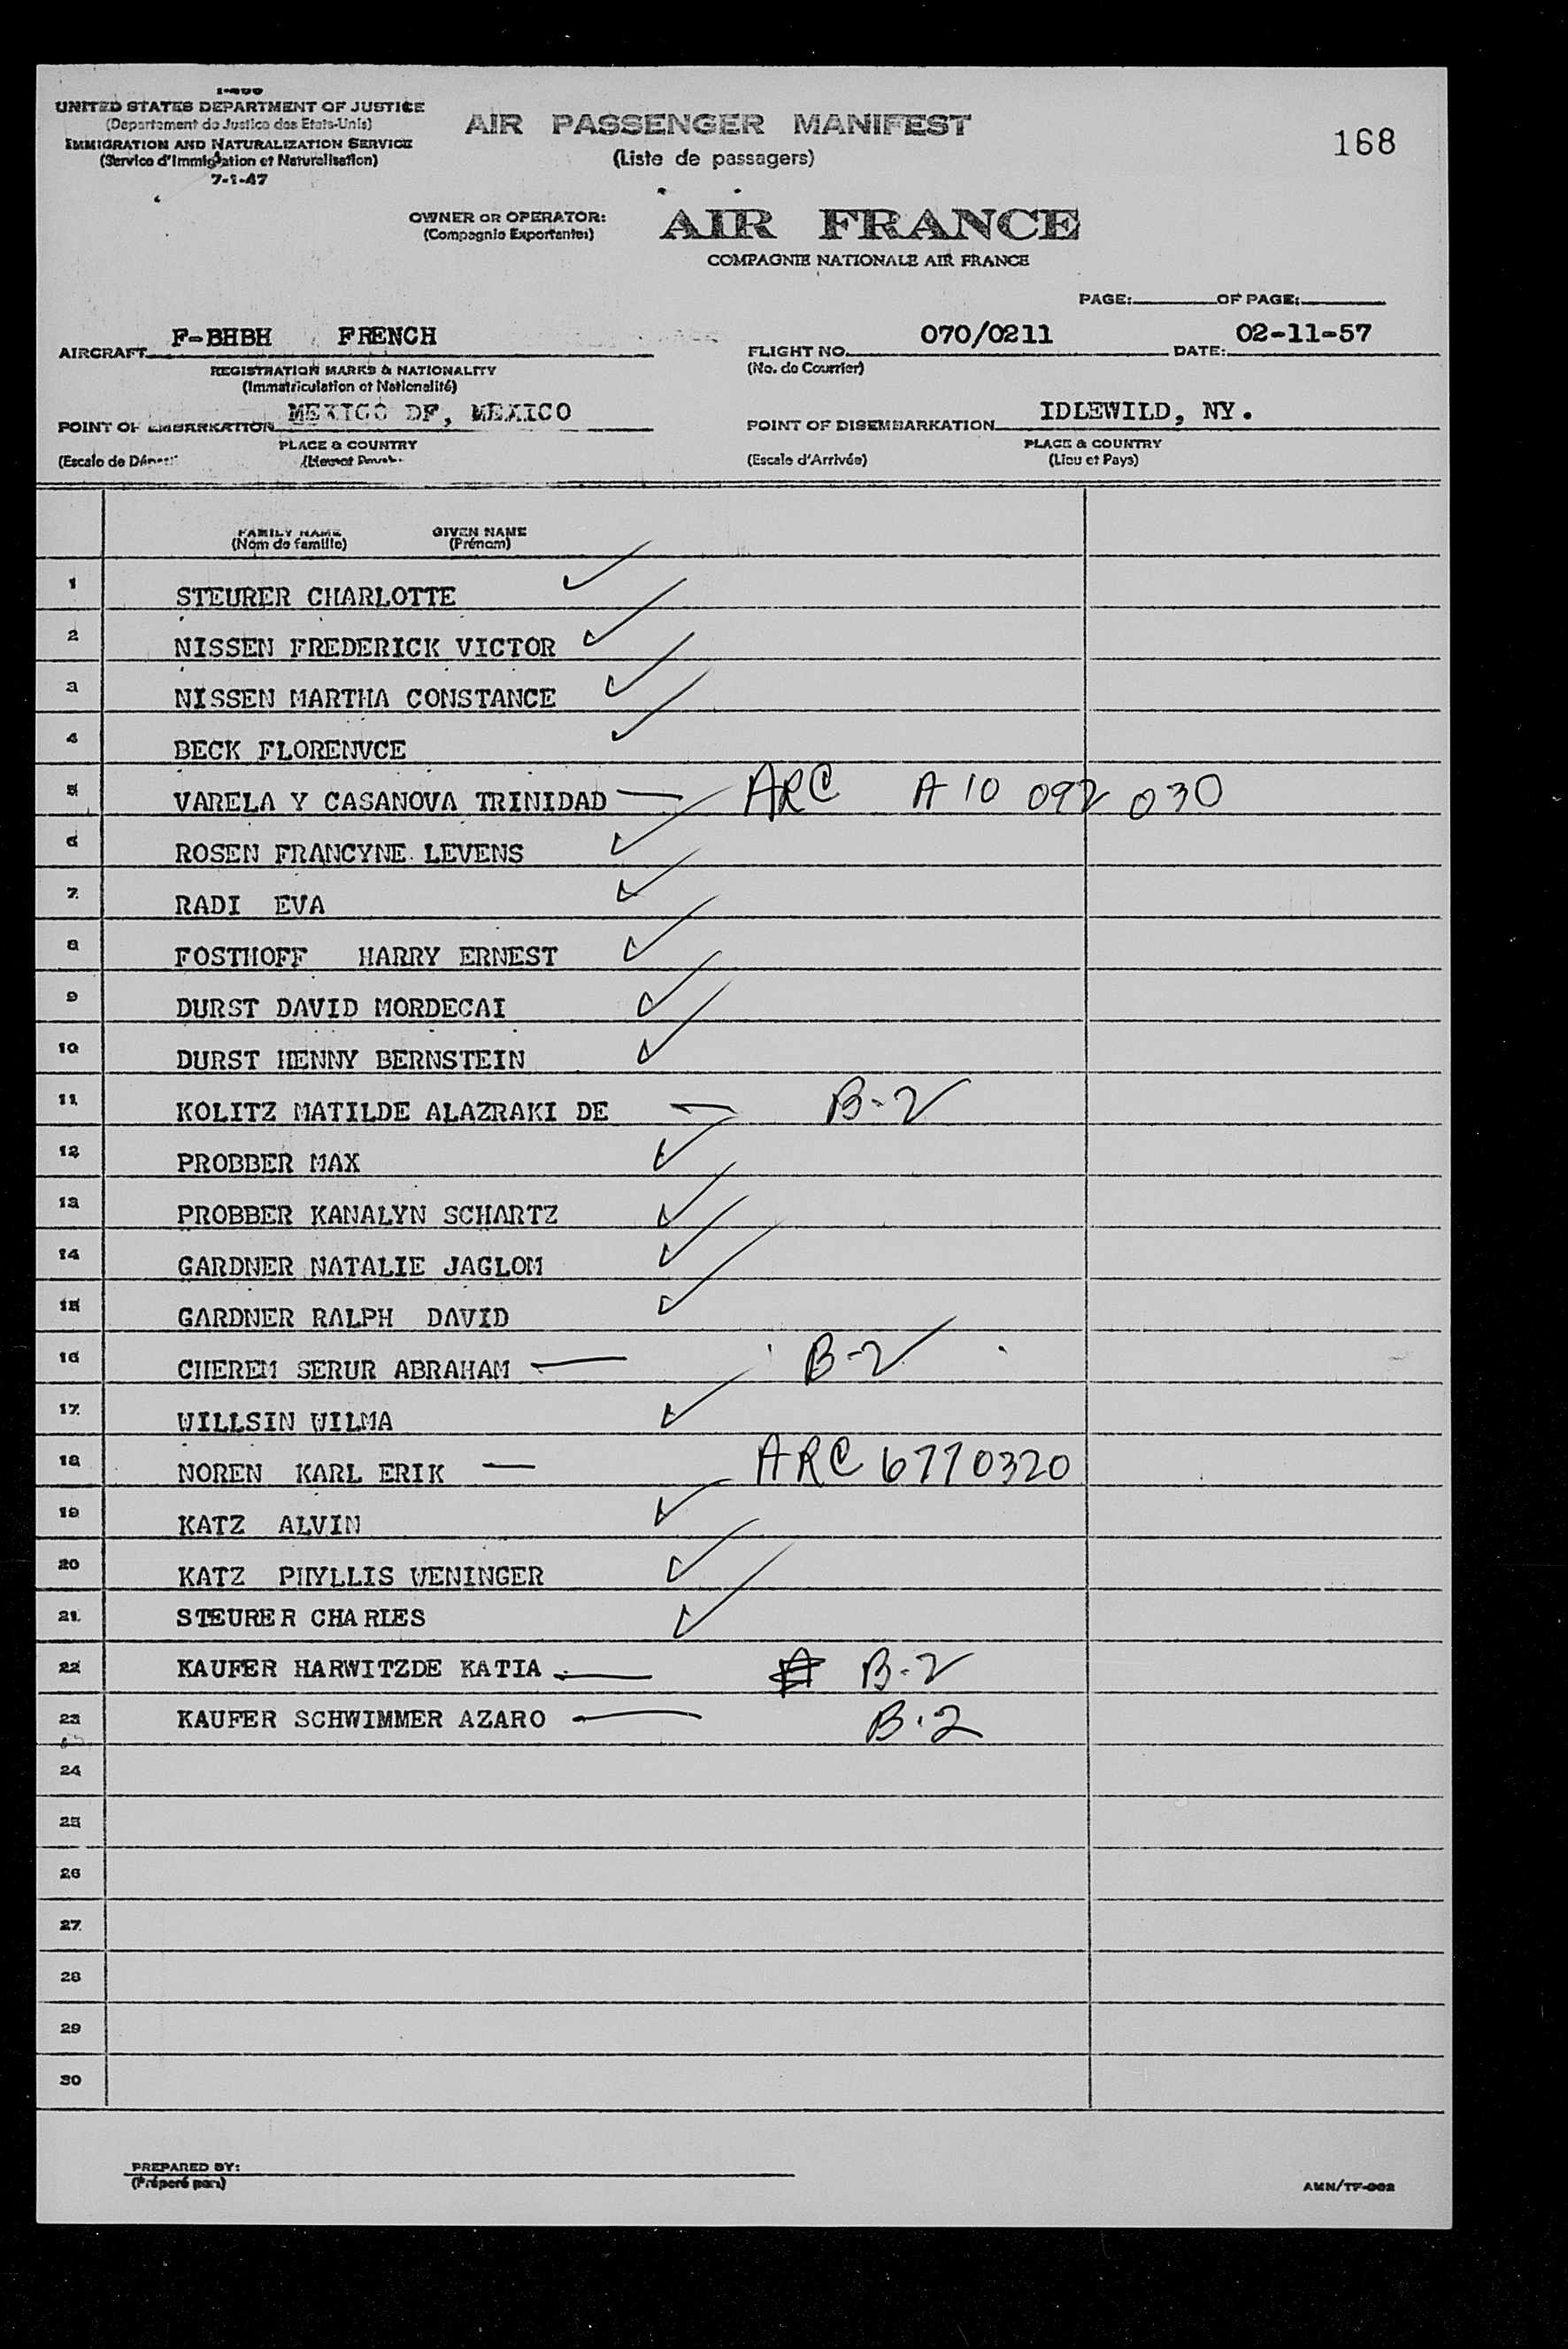 UNITED STATES DEPARTMENT OF JUSTICE
(Departement de Justice des Etats-Unis)
IMMIGRATION AND NATURALIZATION SERVICE
(Service d'Immigration et Naturalisation)
7-1-47
AIR PASSENGER MANIFEST
(Liste de passagers)
168
OWNER OR OPERATOR:
(Compagnie Exportantes)
AIR FRANCE
COMPAGNIE NATIONALE AIR FRANCE
PAGE: OF PAGE:
AIRCRAFT F-BHBH FRENCH
REGISTRATION MARKS & NATIONALITY
(Immatriculation et Nationalité)
FLIGHT NO. 070/0211 DATE: 02-11-57
(No. de Courrier)
POINT OF EMBARKATION MEXICO DF, MEXICO
PLACE & COUNTRY
(Escale de
POINT OF DISEMBARKATION IDLEWILD, NY.
PLACE & COUNTRY
(Escale d'Arrivée) (Lieu et Pays)
FAMILY NAME GIVEN NAME
(Nom de famille) (Prénom)
1 STEURER CHARLOTTE ✓
2 NISSEN FREDERICK VICTOR ✓
3 NISSEN MARTHA CONSTANCE ✓
4 BECK FLORENVCE ✓
5 VARELA Y CASANOVA TRINIDAD — ARC A 10 092 030
6 ROSEN FRANCYNE LEVENS ✓
7 RADI EVA ✓
8 FOSTHOFF HARRY ERNEST ✓
9 DURST DAVID MORDECAI ✓
10 DURST HENNY BERNSTEIN ✓
11 KOLITZ MATILDE ALAZRAKI DE — B-2
12 PROBBER MAX ✓
13 PROBBER KANALYN SCHARTZ ✓
14 GARDNER NATALIE JAGLOM ✓
15 GARDNER RALPH DAVID ✓
16 CHEREM SERUR ABRAHAM — B-2
17 WILLSIN WILMA ✓
18 NOREN KARL ERIK — ARC 6770320
19 KATZ ALVIN ✓
20 KATZ PHYLLIS WENINGER ✓
21 STEURER CHARLES ✓
22 KAUFER HARWITZDE KATIA — B-2
23 KAUFER SCHWIMMER AZARO — B-2
24
25
26
27
28
29
30
PREPARED BY:
(Préparé par:)
AMN/TF-002